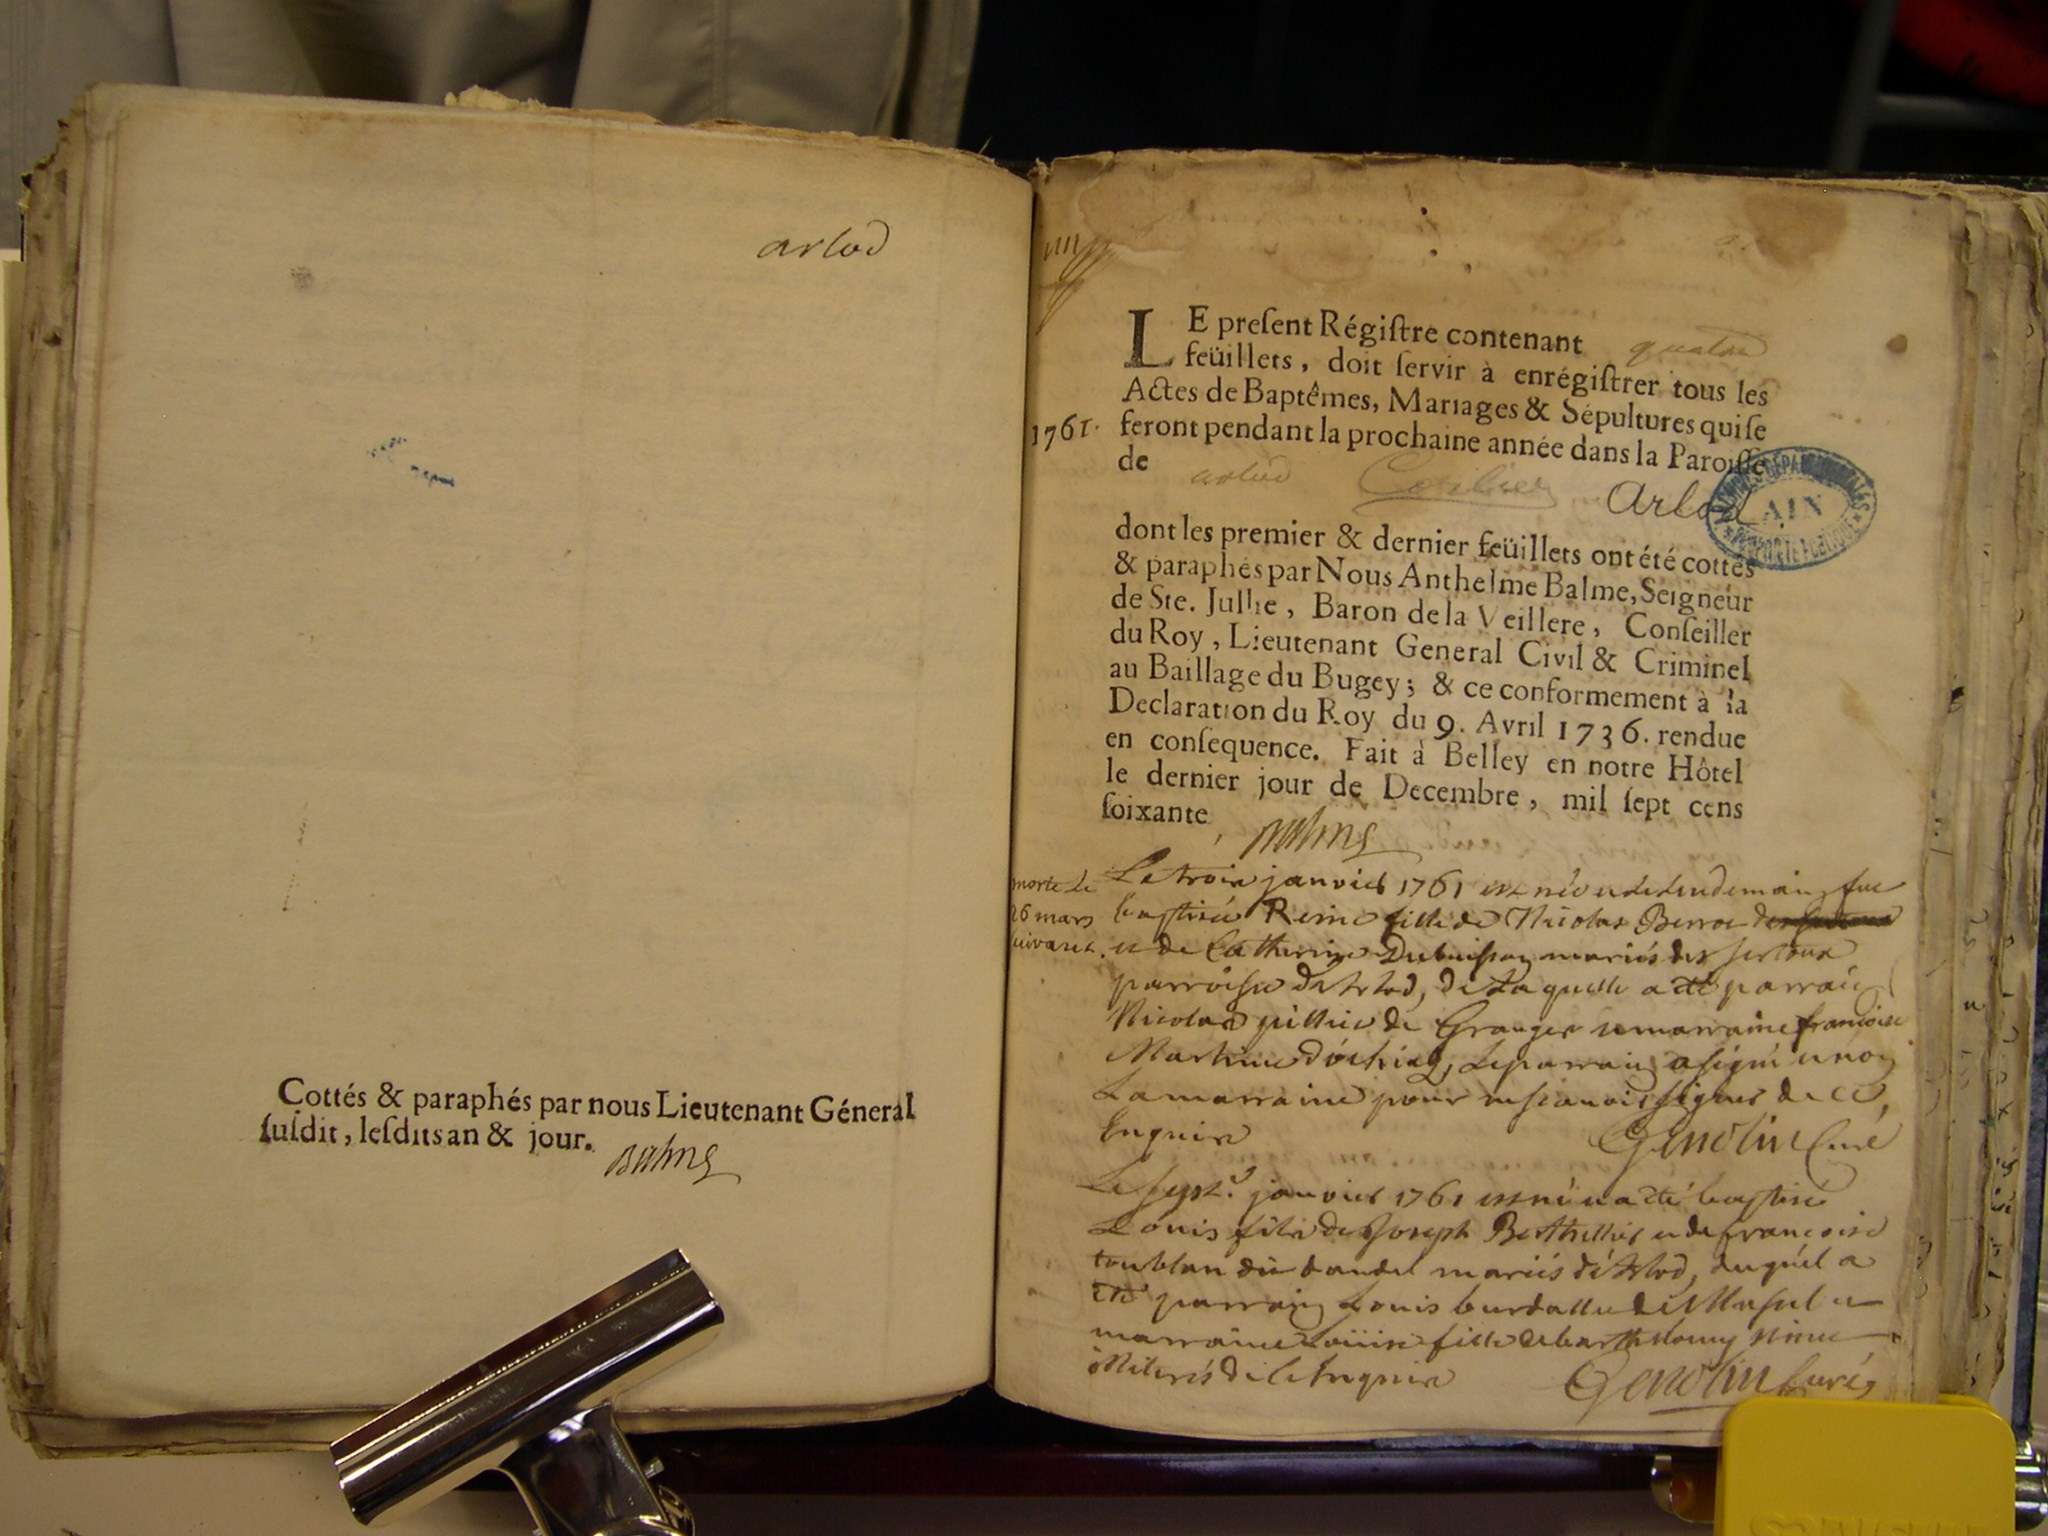 arlod
Cottés & paraphés par nous Lieutenant Géneral
ſuſdit, leſdits an & jour. Balme
LE preſent Régiſtre contenant quatre
feüillets, doit ſervir à enrégiſtrer tous les
Actes de Baptêmes, Mariages & Sépultures qui ſe
1761. feront pendant la prochaine année dans la Paroiſſe
de arlod Arlod
AIN
dont les premier & dernier feüillets ont été cottés
& paraphés par Nous Anthelme Balme, Seigneur
de Ste. Jullie, Baron de la Veillere, Conſeiller
du Roy, Lieutenant General Civil & Criminel
au Baillage du Bugey; & ce conformement à la
Declaration du Roy du 9. Avril 1736. rendue
en conſequence. Fait à Belley en notre Hôtel
le dernier jour de Decembre, mil ſept cens
ſoixante Balme
morte le
26 mars
suivant.
Le trois janvier 1761 est née et le lendemain fut
baptisée Reine fille de Nicolas Berrod
et de Catherine Dubuisson mariés des
parroisse d'Arlod, de laquelle a été parrain
Nicolas de Granges et marraine françoise
Martine d'ochiaz, le parrain a signé et non
la marraine pour ne sçavoir signer de ce
Enquise Genolin Curé
Le sept janvier 1761 est né et a été baptisé
Louis fils de Joseph Berthillier et de françoise
dit mariés d'Arlod, duquel a
été parrain Louis de et
marraine Louise fille de barthelemy
illiterés de ce Enquis Genolin Curé